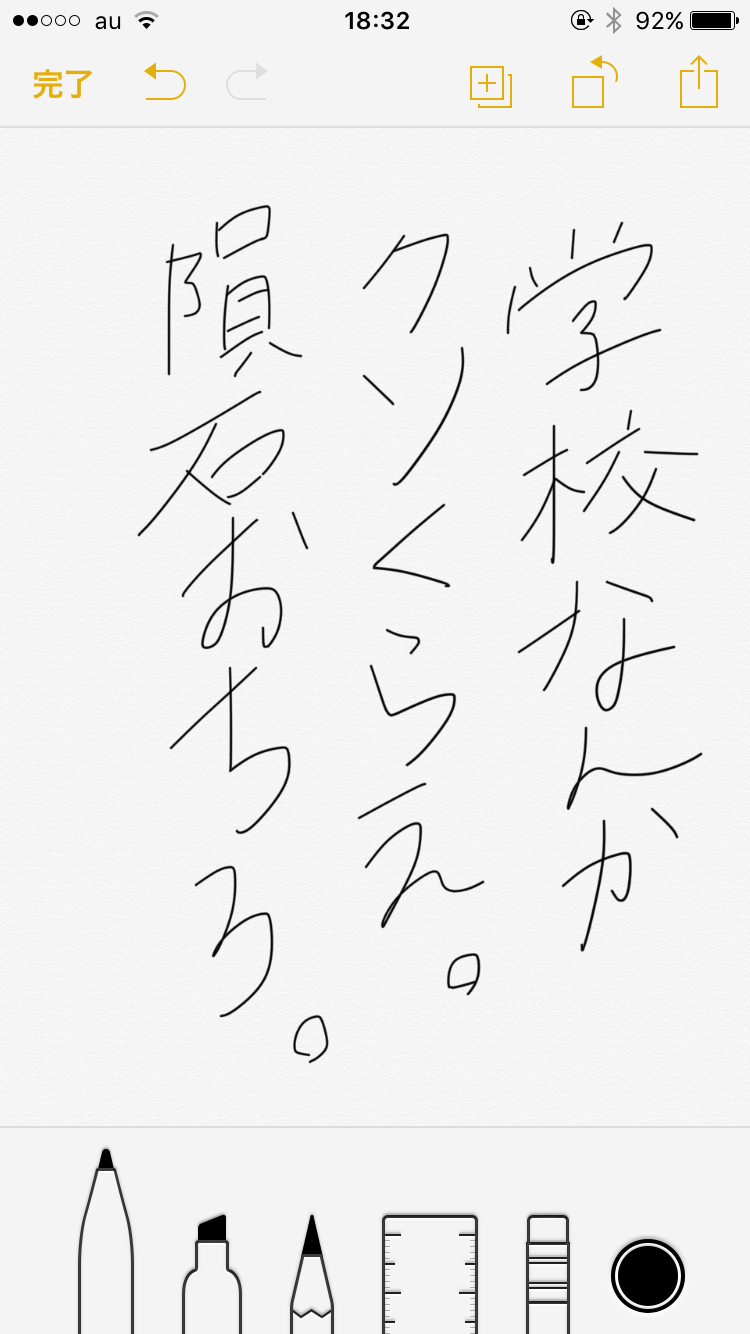 au 18:32 92%
完了
学校なんか
クソくらえ。
隕石おちろ。